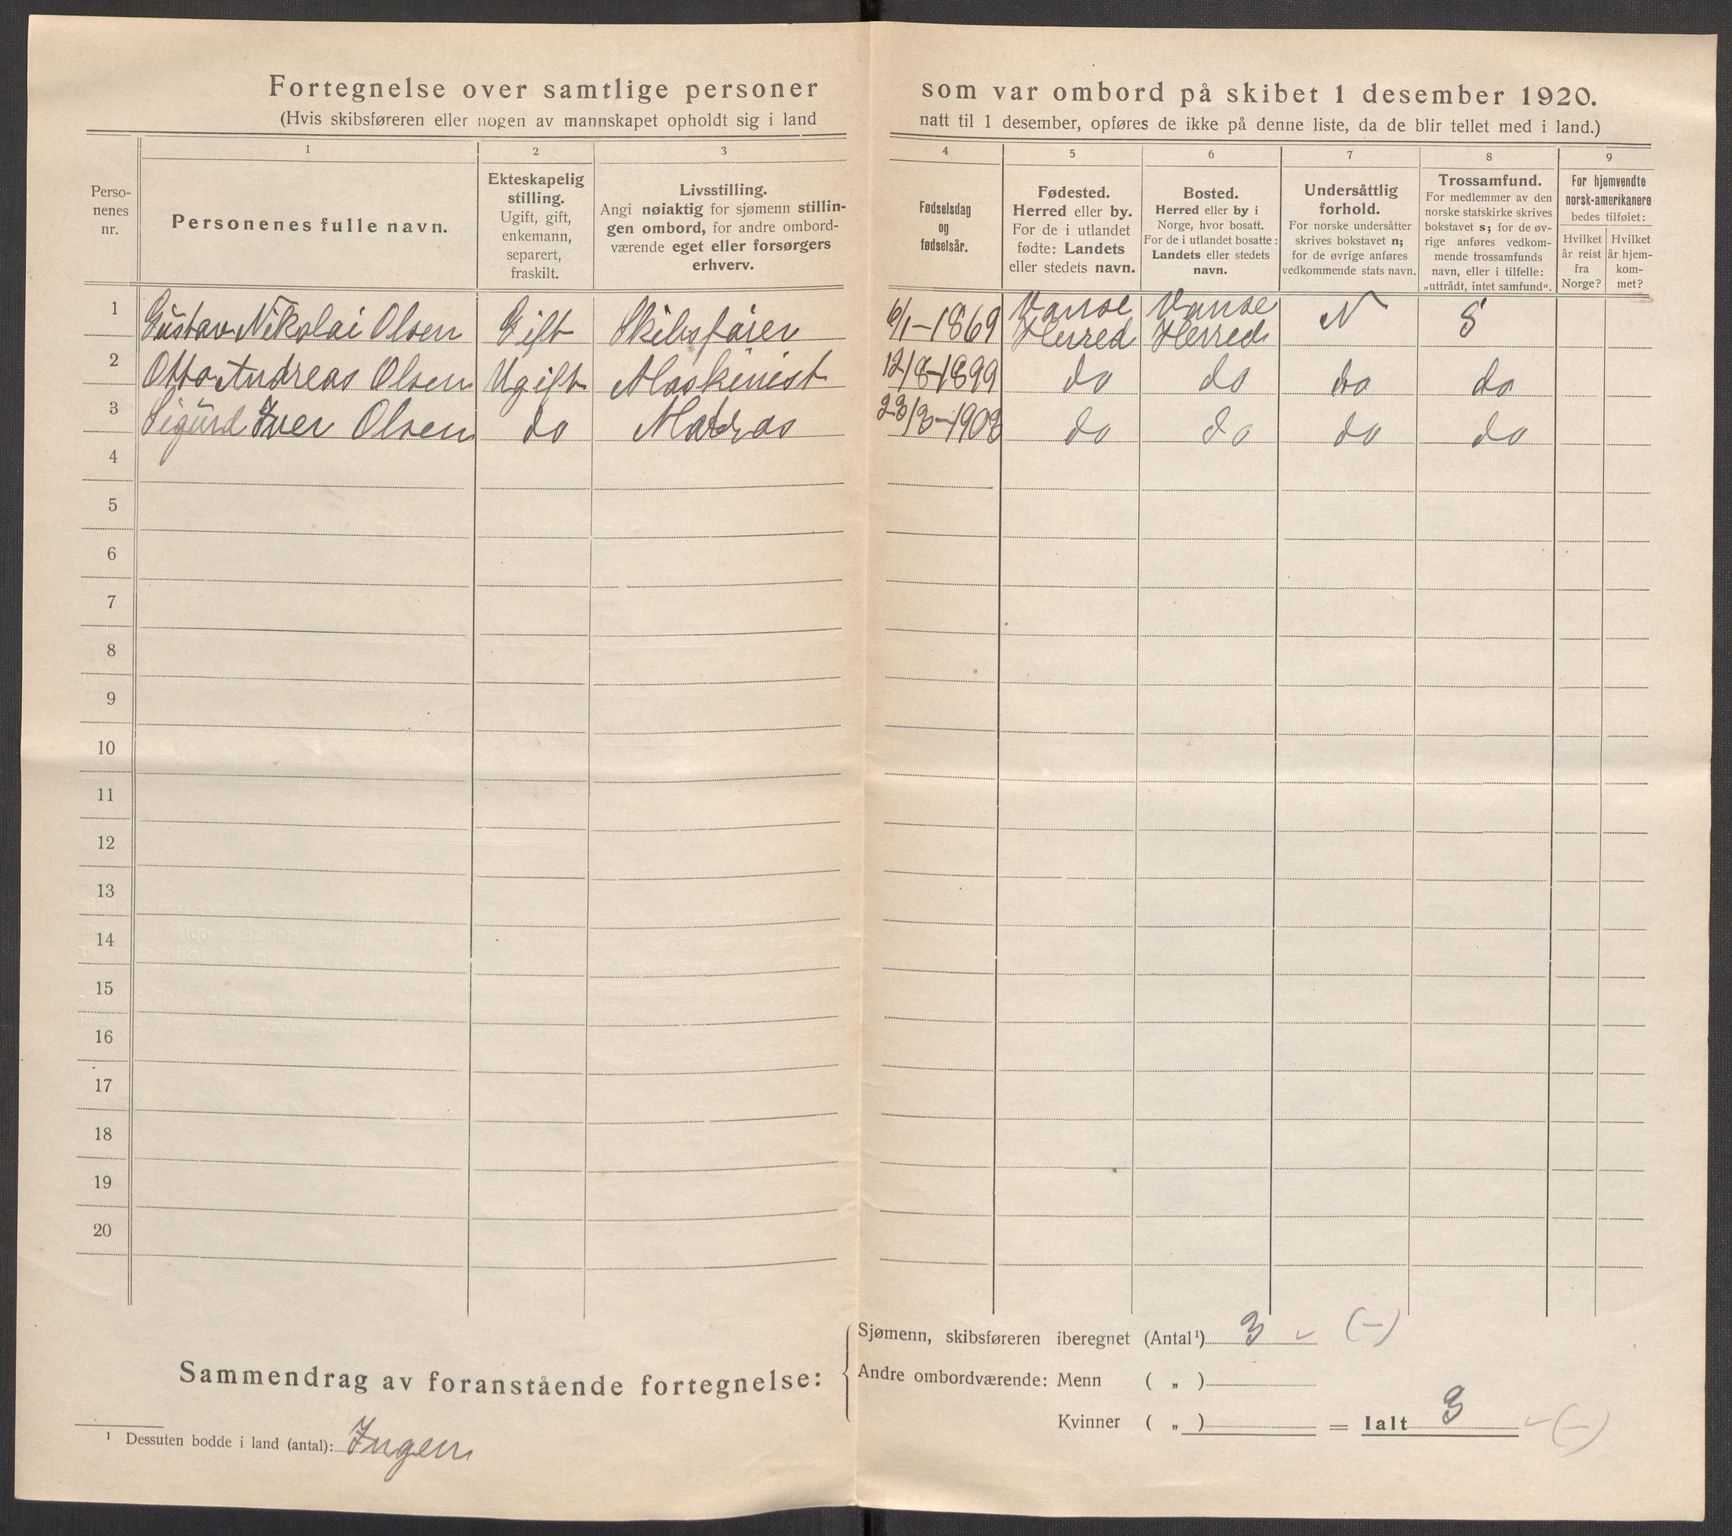 Fortegnelse over samtlige personer som var ombord på skibet 1 desember 1920.
(Hvis skibsføreren eller nogen av mannskapet opholdt sig i land natt til 1 desember, opføres de ikke på denne liste, da de blir tellet med i land.)
1 2 3 4 5 6 7 8 9
Personenes nr.
Personenes fulle navn.
Ekteskapelig stilling.
Ugift, gift, enkemann, separert, fraskilt.
Livsstilling.
Angi nøiaktig for sjømenn stillingen ombord, for andre ombordværende eget eller forsørgers erhverv.
Fødselsdag og fødselsår.
Fødested.
Herred eller by.
For de i utlandet fødte: Landets eller stedets navn.
Bosted.
Herred eller by i Norge, hvor bosatt.
For de i utlandet bosatte: Landets eller stedets navn.
Undersåttlig forhold.
For norske undersåtter skrives bokstavet n; for de øvrige anføres vedkommende stats navn.
Trossamfund.
For medlemmer av den norske statskirke skrives bokstavet s; for de øvrige anføres vedkommende trossamfunds navn, eller i tilfelle: „uttrådt, intet samfund".
For hjemvendte norsk-amerikanere bedes tilføiet:
Hvilket år reist fra Norge?
Hvilket år hjemkommet?
1 Gustav Nikolai Olsen Gift Skibsfører 6/1-1869 Vanse Herred Vanse Herred N S
2 Otto Andreas Olsen Ugift Maskinist 12/8-1899 do do do do
3 Sigurd Iver Olsen do Matros 23/3-1903 do do do do
4
5
6
7
8
9
10
11
12
13
14
15
16
17
18
19
20
Sammendrag av foranstående fortegnelse:
Sjømenn, skibsføreren iberegnet (Antal¹) 3 - (-)
Andre ombordværende: Menn ( „ )
Kvinner ( „ ) = Ialt 3 - (-)
¹ Dessuten bodde i land (antal): Ingen